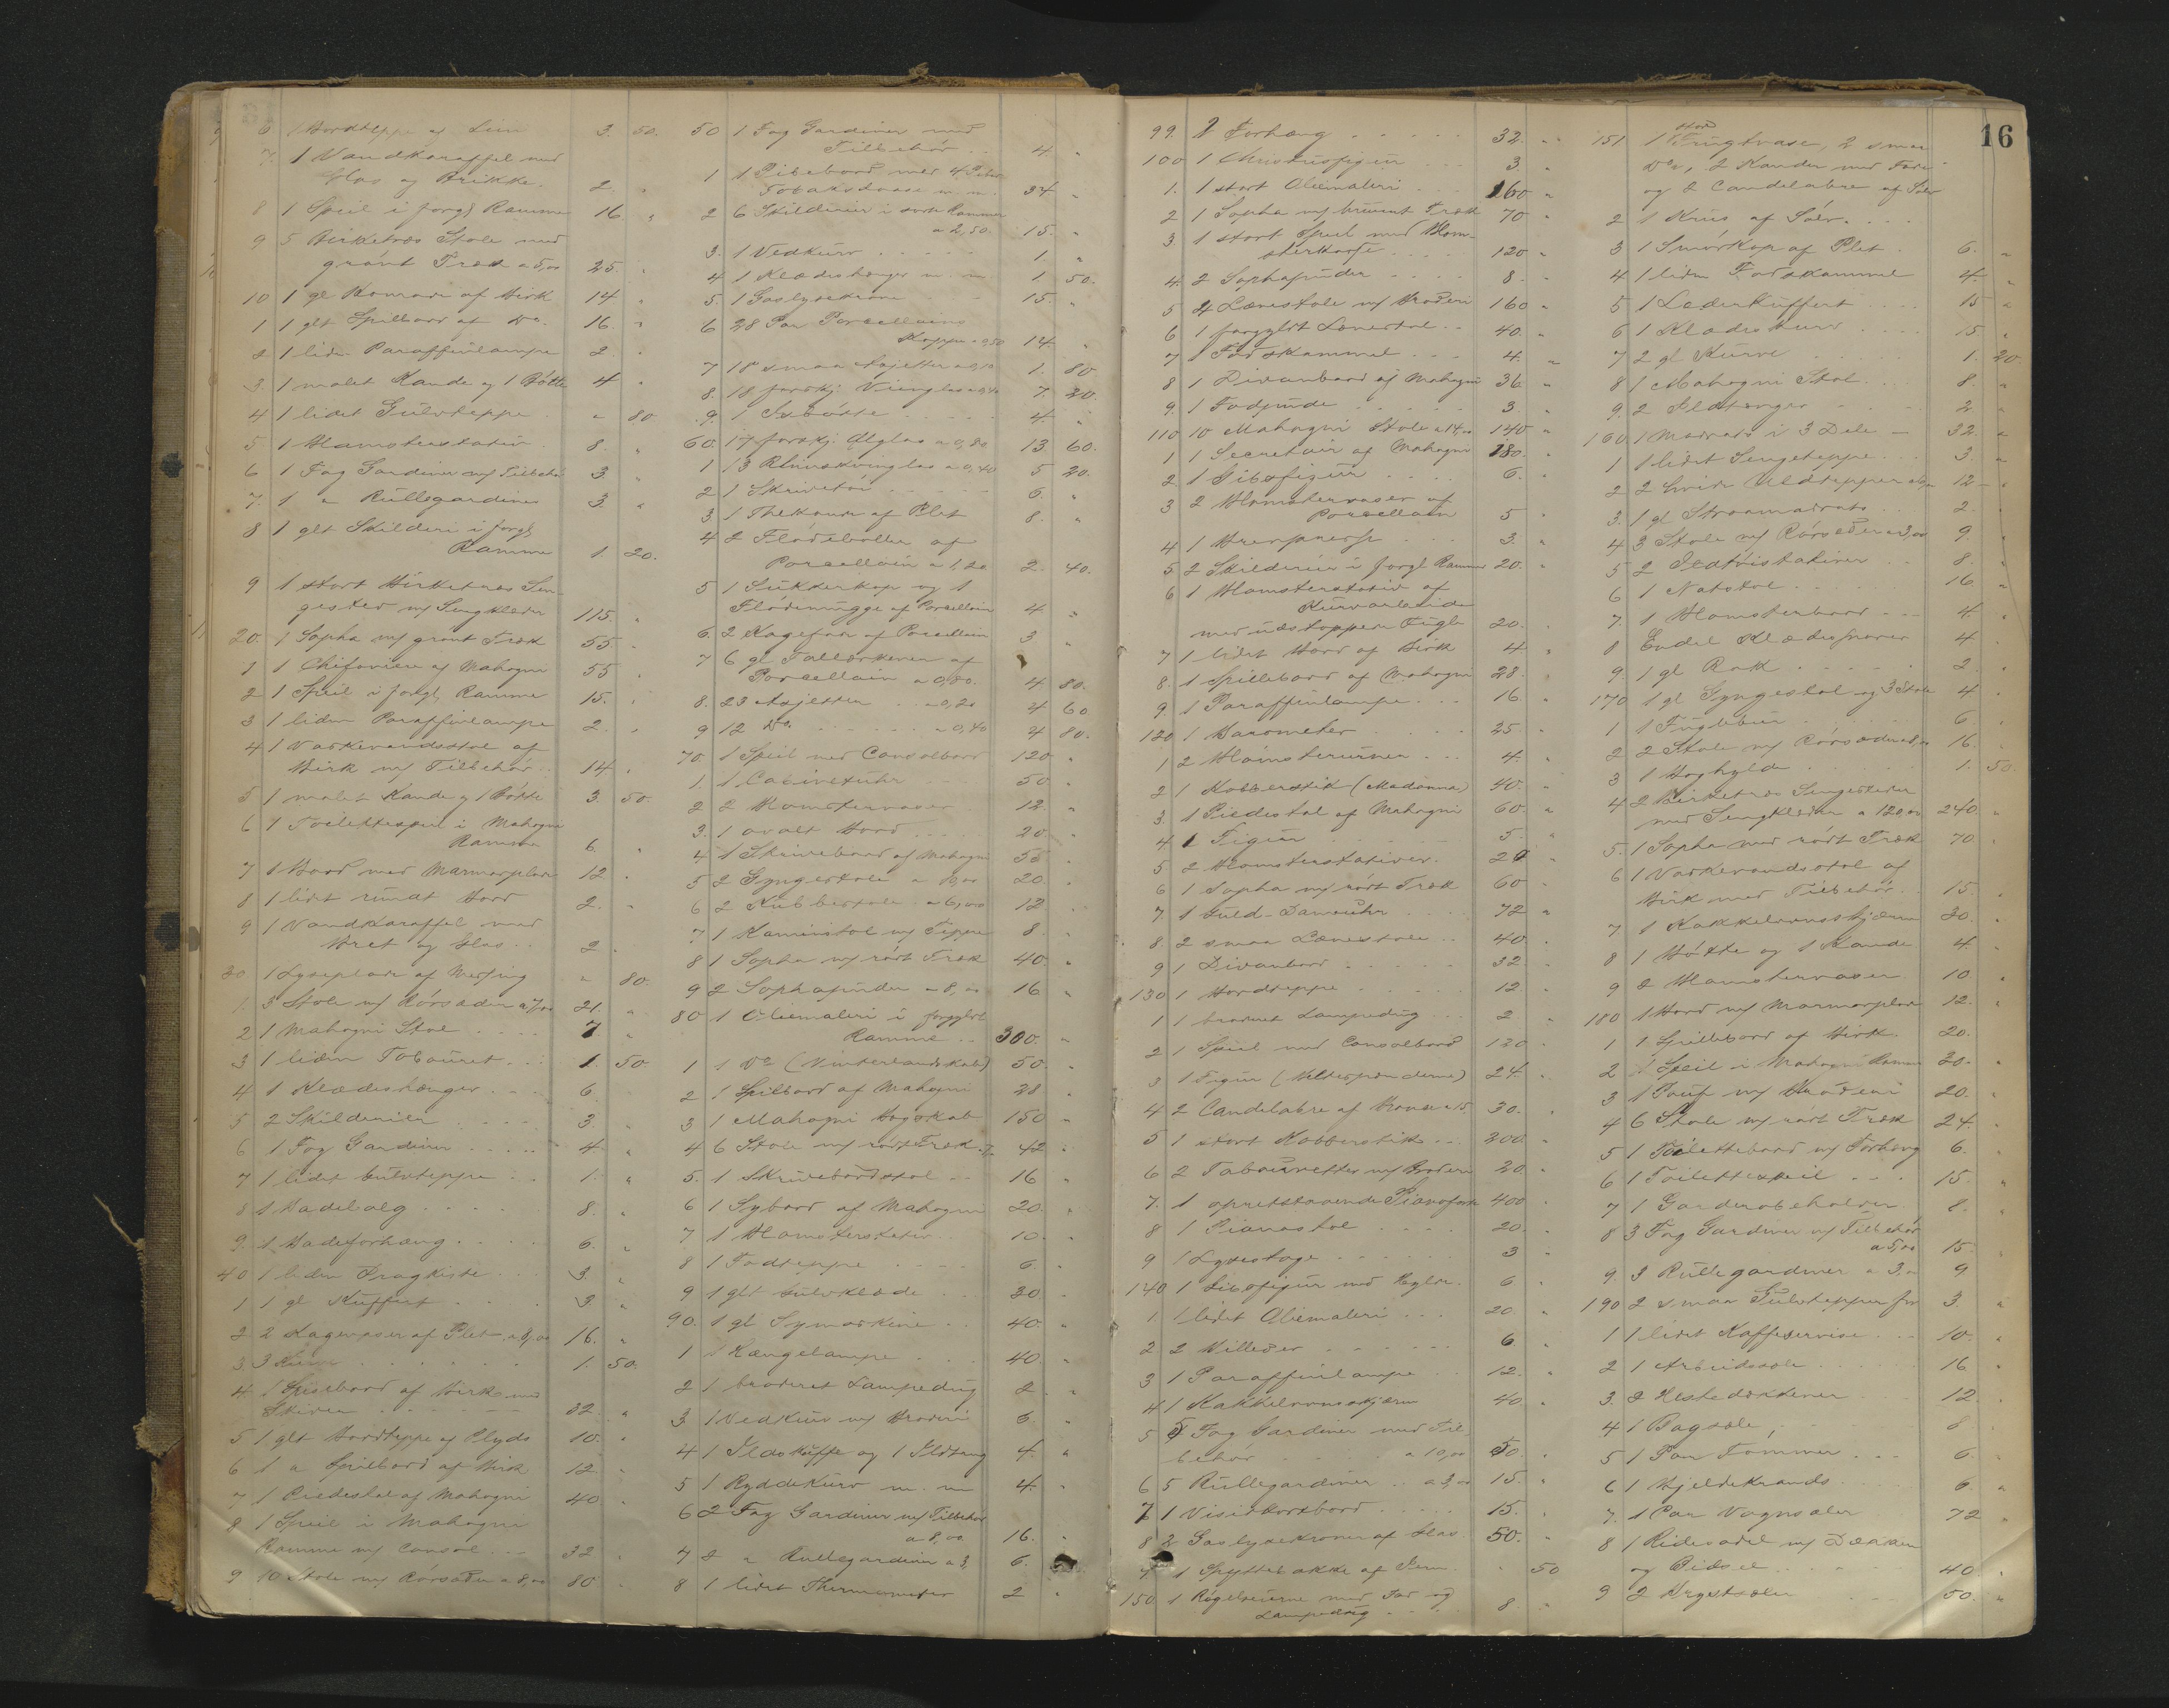 6 1 Bordteppe af Lin 3. 50.
7. 1 Vandkaraffel med
Glas og Brikke. 2. "
8 1 Speil i forgl Ramme 16 "
9 5 Birketræs Stole med
grönt Træk a 5,00 25. "
10 1 gl Komode af Birk 14 "
1 1 glt Spilbord af Do. 16. "
2 1 liden Paraffinlampe 2. "
3. 1 malet Kande og 1 Bötte 4 "
4 1 lidet Gulvteppe " 80
5 1 Blomsterstativ 8. "
6 1 Fag Gardiner m/ Tilbehör 3 "
7. 1 " Rullegardiner 3 "
8 1 glt Skilderi i forgl
Ramme 1 20.
9 1 stort Birketræs Sen-
gested m/ Sengklæder 115. "
20. 1 Sopha m/ grönt Træk 55 "
1 1 Chifoniere af Mahogni 55 "
2 1 Speil i forgl. Ramme 15. "
3 1 liden Paraffinlampe 2. "
4 1 Vaskevandsstol af
Birk m/ Tilbehör 14 "
5 1 malet Kande og 1 Bötte 3. 50.
6 1 Toilettespeil i Mahogni
Ramme 6. "
7 1 Bord med Marmorplade 12 "
8 1 lidet rundt Bord 2. "
9 1 Vandkaraffel med
Bret og Glas 2 "
30 1 Lyseplade af Messing " 80.
1. 3 Stole m/ Rörsæder a 7,00 21. "
2 1 Mahogni Stol 7 "
3 1 liden Tabouret 1. 50
4 1 Klædeshænger 6.
5 2 Skilderier 3. "
6 1 Fag Gardiner 4. "
7 1 lidet Gulvteppe 1. "
8 1 Badebalg 8. "
9. 1 Badeforhæng 6. "
40 1 liden Dragkiste 3. "
1 1 gl Kuffert 3. "
2 2 Kagevaser af Plet a 8,00 16. "
3 3 Kurve 1. 50.
4. 1 Spisebord af Birk med
Skiver 32. "
5 1 glt Bordteppe af Plyds 10. "
6 1 " Spilbord af Birk 12 "
7 1 Piedestal af Mahogni 40 "
8 1 Speil i Mahogni
Ramme m/ Consol 32 "
9 10 Stole m/ Rörsæder a 8,00 80 "
50 1 Fag Gardiner med
Tilbehör 4 "
1 1 Pibebord med 4 Piber
Tobaksdaase m. m. 34 "
2 6 Skilderier i sorte Rammer
a 2,50. 15. "
3. 1 Vedkurv 1. "
4 1 Klædeshænger m. m 1. 50.
5. 1 Gaslysekrone 15. "
6 28 Par Porcellains
Kopper a 0,50 14. "
7 18 smaa Asjetter a 0,10 1. 80
8. 18 forskj. Vinglas a 0,40 7. 20.
9. 1 Isbötte 4. "
60. 17 forskj. Ölglas a 0,80 13 60.
1 13 Rhinskvinglas a 0,40 5 20.
2 1 Skrivetöi 6. "
3. 1 Thekande af Plet 8. "
4 2 Flödeboller af
Porcellain a 1,20 2. 40.
5 1 Sukkerkop og 1
Flödemugge af Porcellain 4 "
6. 2 Kagefade af Porcellain 3 "
7 6 gl Tallerkener af
Porcellain a 0,80. 4 80.
8. 23 Asjetter a 0,20 4 60
9 12 Do a 0,40 4 80.
70. 1 Speil med Consolbord 120 "
1. 1 Cabinetuhr 50 "
2 2 Blomstervaser 12. "
3. 1 ovalt Bord 20. "
4 1 Skrivebord af Mahogni 55 "
5 2 Gyngestole a 10,00 20. "
6 2 Kubbestole a 6,00 12 "
7 1 Kaminstol m/ Teppe 8. "
8 1 Sopha m/ rödt Træk 40. "
9 2 Sophapuder a 8,00 16 "
80 1 Oliemaleri i forgyldt
Ramme 300. "
1 1 Do (Vinterlandskab) 50. "
2 1 Spilbord af Mahogni 28 "
3 1 Mahogni Bogskab 150 "
4 6 Stole m/ rödt Træk a 7,- 42 "
5. 1 Skrivebordsstol 16 "
6 1 Sybord af Mahogni 20. "
7 1 Blomsterstativ 10. "
8 1 Fodteppe 6. "
9 1 glt Gulvklæde 30 "
90. 1 gl Symaskine 40. "
1 1 Hængelampe 40. "
2 1 broderet Lampedug 2. "
3 1 Vedkurv m/ Broderi 6. "
4 1 Ildskuffe og 1 Ildtang 4. "
5 1 Ryddekurv m. m 4. "
6 2 Fag Gardiner m/ Tilbehör
a 8,00 16. "
7 2 " Rullegardiner a 3, 6.
8 1 lidet Thermometer 2 "
16
99. 2 Forhæng 32. "
100 1 Christusfigur 3 "
1. 1 stort Oliemaleri 160 "
2 1 Sopha m/ brunt Træk 70 "
3. 1 stort Speil med Blom-
sterkasse 120 "
4. 2 Sophapuder 8 "
5 4 Lænestole m/ Broderi 160 "
6 1 forgyldt Lænestol 40. "
7 1 Fodskammel 4. "
8 1 Divanbord af Mahogni 36 "
9. 1 Fodpude 3. "
110 10 Mahogni Stole a 14,00 140 "
1 1 Secretair af Mahogni 180. "
2. 1 Gibsfigur 6. "
3 2 Blomstervaser af
Porcellain 5 "
4 1 Brevpresse 3. "
5. 2 Skilderier i forgl Rammer 20. "
6 1 Blomsterstativ af
Kurvarbeide
med udstoppede Fugle 20. "
7 1 lidet Bord af Birk 4 "
8. 1 Spillebord af Mahogni 28. "
9. 1 Paraffinlampe 16. "
120 1 Barometer 25 "
1 2 Blomsterurner 4. "
2 1 Kobberstik (Madonna) 40. "
3. 1 Piedestal af Mahogni 60. "
4. 1 Figur 5. "
5 2 Blomsterstativer.
6 1 Sopha m/ rödt Træk 60 "
7 1 Guld-Dameuhr 72 "
8 2 smaa Lænestole 40. "
9 1 Divanbord 32 "
130 1 Bordteppe 12. "
1 1 broderet Lampedug 2 "
2 1 Speil med Consolbord 120 "
3 1 Figur (Beltespænderne) 24. "
4 2 Candelabre af Bronce a 15. 30. "
5 1 stort Kobberstik 200. "
6 2 Tabouretter m/ Broderi 20. "
7. 1 opretstaaende Pianoforte 400 "
8 1 Pianostol 20. "
9 1 Lysestage 3 "
140 1 Gibsfigur med Hylde. 6 "
1. 1 lidet Oliemaleri 20. "
2 2 Billeder 6 "
3 1 Paraffinlampe 12. "
4 1 Kakkelovnsskjærm 40 "
5 5 Fag Gardiner med Til-
behör a 10,00 50 "
6 5 Rullegardiner a 3,00 15. "
7 1 Visitkortbord 15. "
8 2 Gaslysekroner af Glas 50. "
9 1 Spyttebakke af Jern " 50
150 1 Rögelseurne med Fad og
Lampedug 8. "
151 1 stor Frugtvase, 2 smaa
Do, 2 Kander med Fade
og 2 Candelabre af Sölv
2 1 Krus af Sölv.
3 1 Smörkop af Plet 6. "
4 1 liden Fodskammel 4. "
5 1 Læderkuffert 15 "
6 1 Klædeskurv 15 "
7 2 gl Kurve 1. 20.
8 1 Mahogni Stol 8. "
9. 2 Ildtænger 2 "
160. 1 Madrats i 3 Dele 32. "
1 1 lidet Sengeteppe 3. "
2 2 hvide Uldtepper 12 "
3. 1 gl Straamadrats 2. "
4 3 Stole m/ Rörsæder a 3,00 9. "
5 2 Jernstativer 8. "
6 1 Natstol 16. "
7. 1 Blomsterbord 4. "
8 Endel Klædesnorer 4 "
9. 1 gl Rak 2. "
170 1 gl Gyngestol og 3 Stole 4 "
1 1 Fuglebur 6. "
2 2 Stole m/ Rörsæder a 8,00 16. "
3 1 Boghylde 1. 50.
4 2 Birketræs Sengesteder
med Sengklæder a 120,00 240. "
5. 1 Sopha med rödt Træk 70 "
6 1 Vaskevandsstol af
Birk med Tilbehör 15. "
7 1 Kakkelovnsskjærm 30. "
8 1 Bötte og 1 Kande 4 "
9 2 Blomstervaser 10 "
180 1 Bord m/ Marmorplade 12. "
1 1 Spillebord af Birk 20. "
2 1 Speil i Mahogni Ramme 30. "
3 1 Pouf m/ Broderi 20. "
4 6 Stole m/ rödt Træk 24. "
5 1 Toilettebord m/ Forhæng 6. "
6 1 Toilettespeil 15. "
7 1 Garderobeholder 8. "
8 3 Fag Gardiner m/ Tilbehör
a 5,00 15 "
9. 3 Rullegardiner a 3,00 9
190 2 smaa Gulvtepper 3. "
1 1 lidet Kaffeservise 10. "
2 1 Arbeidssele 16. "
3. 2 Hestedækkener 12. "
4 1 Bagsele, 8 "
5 1 Par Tömmer 6. "
6 1 Bjeldekrands 6 "
7. 1 Par Vognseler 72 "
8 1 Ridesadel m/ Dækken
og Bidsel 40. "
9 2 Brystseler 50. "